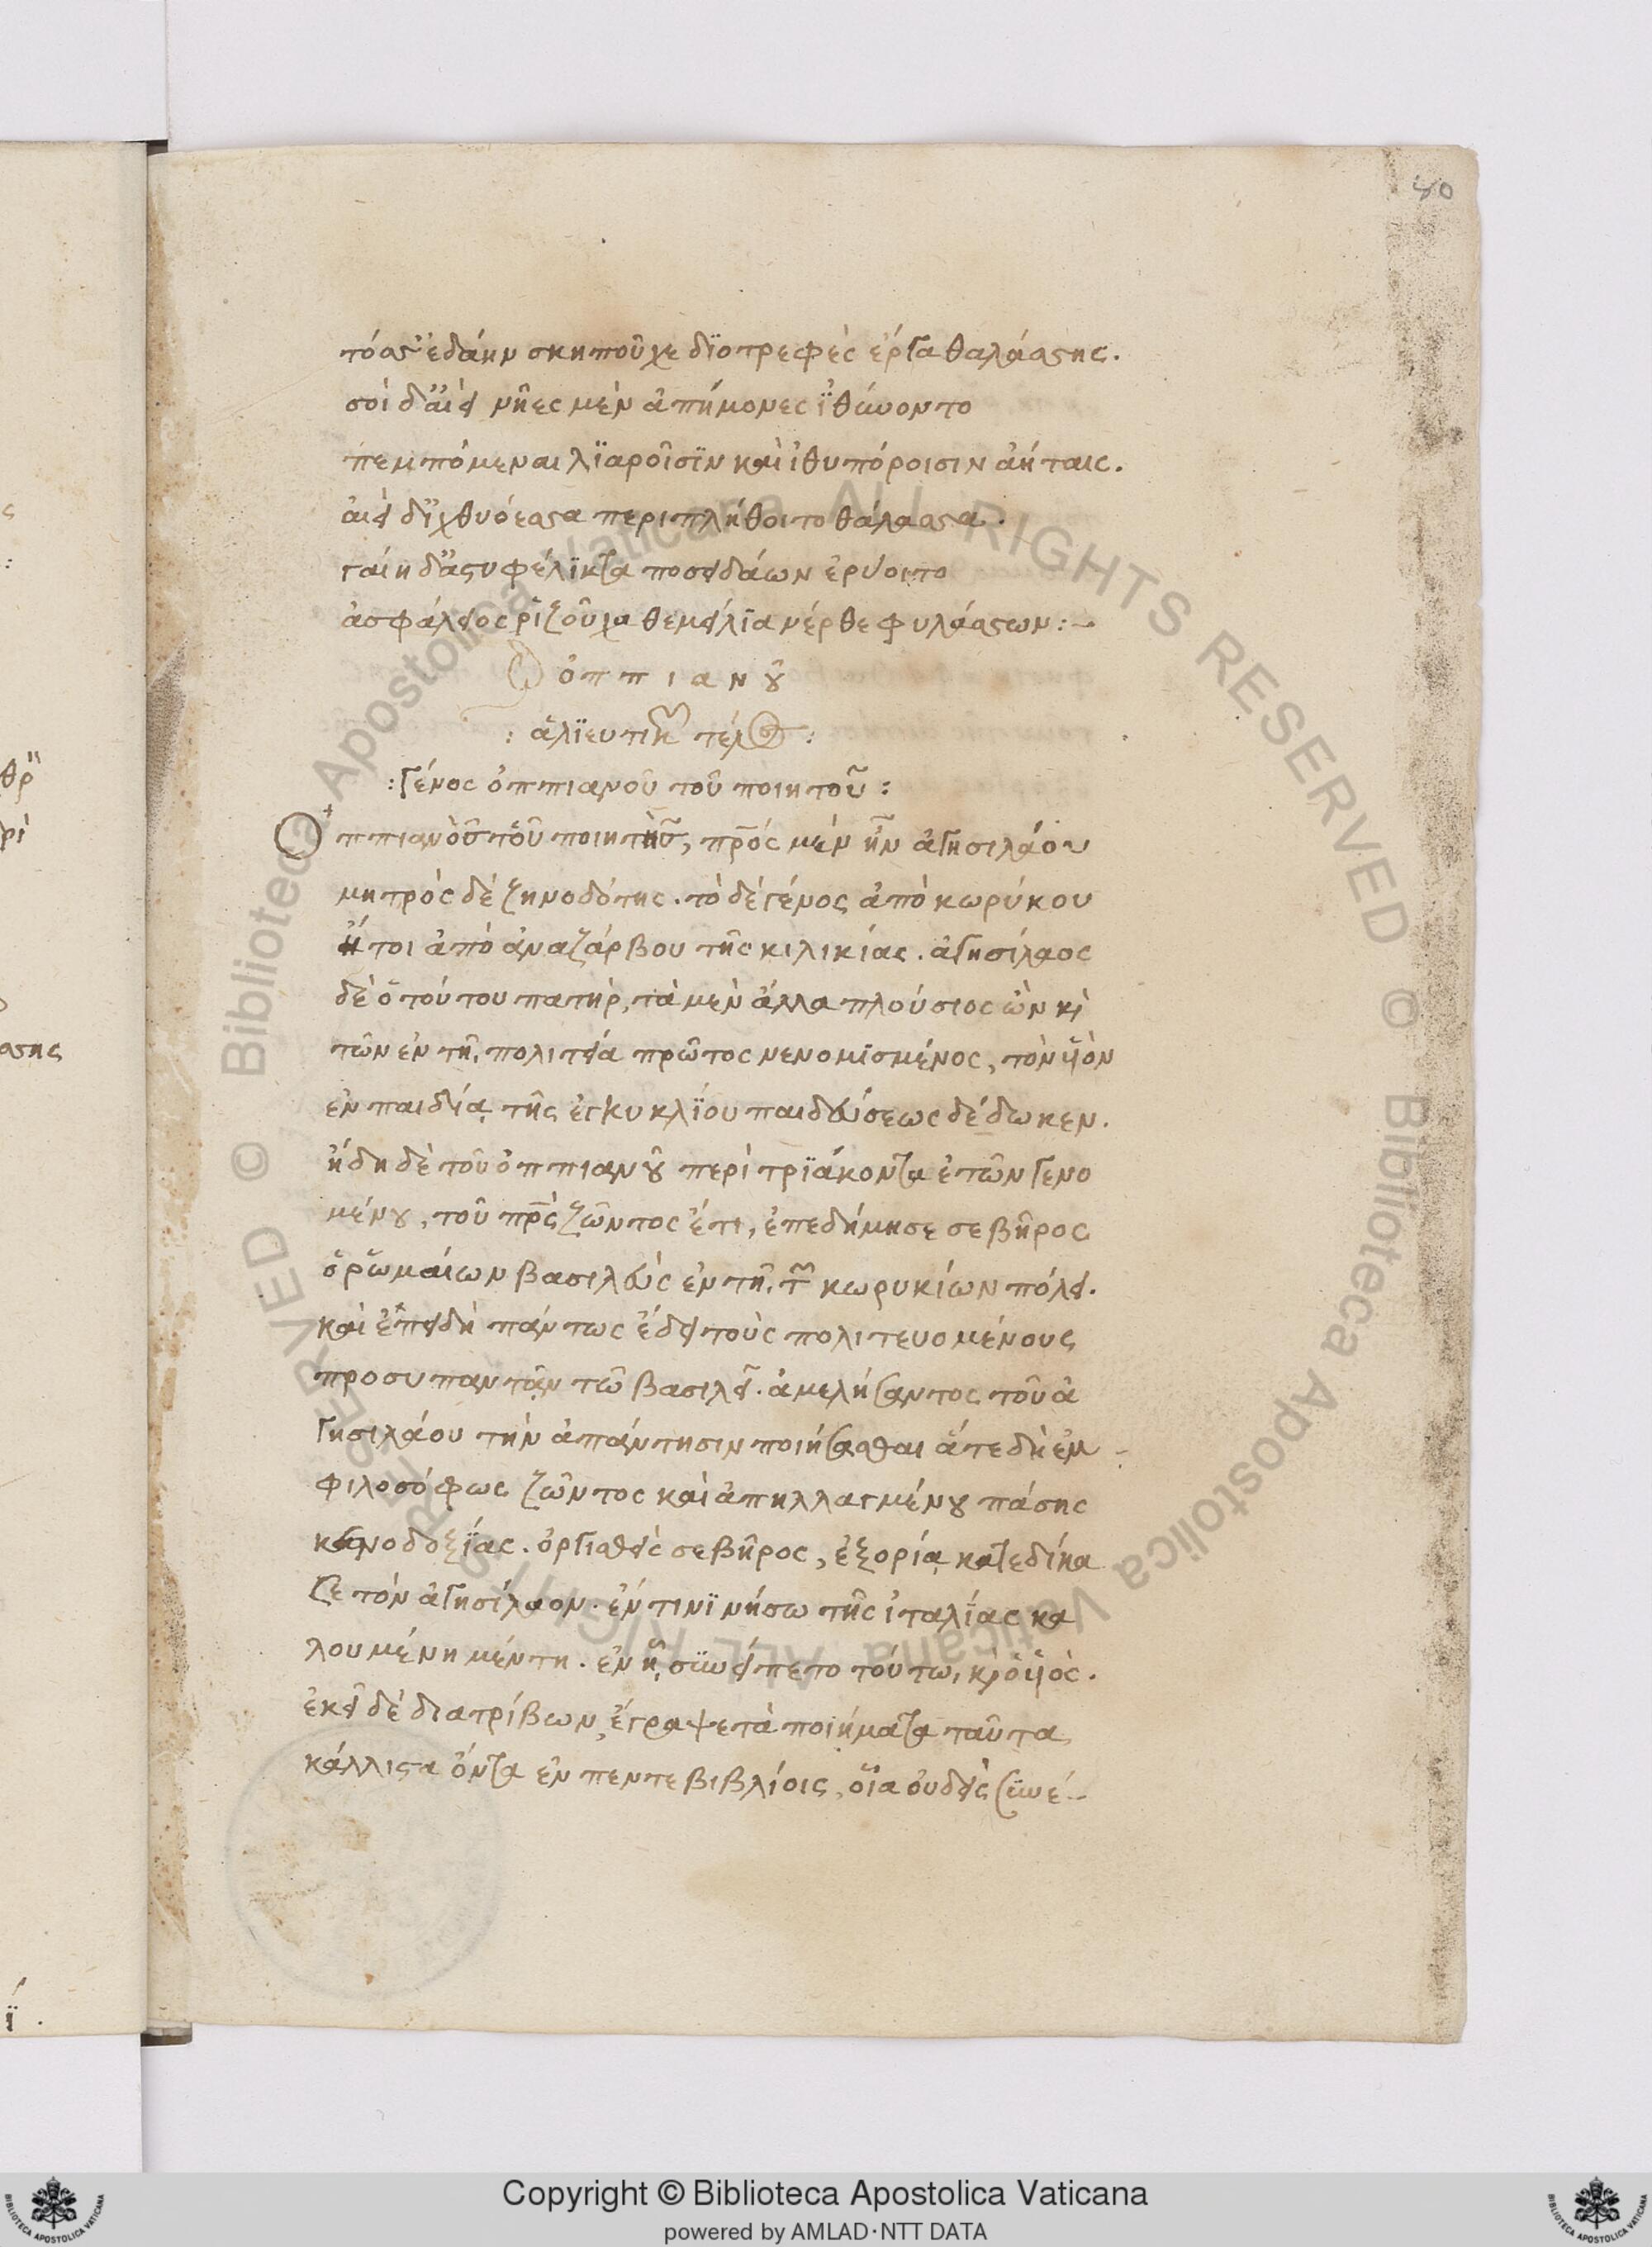 40
τόσσ' ἐδάην σκηπτοῦχε δϊοτρεφὲς ἔργα θαλάσσης.
σοὶ δ' αἰεὶ νῆες μὲν ἀπήμονες ἰθύνοντο
πεμπόμεναι λϊαροῖσϊν καὶ ἰθυπόροισιν ἀήταις.
αἰεὶ δ' ἰχθυόεσσα περιπλήθοιτο θάλασσα.
γαίη δ' ἀστυφέλϊκτα ποσειδάων ἐρύοιτο
ἀσφάλειος ῥιζοῦχα θεμείλϊα νέρθε φυλάσσων:~
ὀππιανοῦ
: ἁλϊευτικῶν τέλος :
: Γένος ὀππιανοῦ τοῦ ποιητοῦ :
Ὀππιανοῦ τοῦ ποιητοῦ, πρς μὲν ἦν ἀγησιλάου
μητρὸς δὲ ζηνοδότης. τὸ δὲ γένος ἀπὸ κωρύκου
ἤτοι ἀπὸ ἀναζάρβου τῆς κιλικίας. ἀγησίλαος
δὲ ὁ τούτου πατὴρ, τὰ μὲν ἄλλα πλούσιος ὢν κὶ
τῶν ἐν τῆ πολιτεία πρῶτος νενομϊσμένος, τὸν υἱὸν
ἐν παιδεία τῆς ἐγκυκλΐου παιδεύσεως δέδωκεν.
ἤδη δὲ τοῦ ὀππιανοῦ περὶ τρϊάκοντα ἐτῶν γενο
μένου, τοῦ πρς ζῶντος ἔτι, ἐπεδήμησε σεβῆρος
ὁ ῥωμαίων βασιλεὺς ἐν τῆ τῶν κωρυκίων πόλει.
καὶ ἐπειδὴ πάντως ἔδει τοὺς πολιτευομένους
προσυπαντᾶν τῶ βασιλεῖ. ἀμελήσαντος τοῦ ἀ
γησιλάου τὴν ἀπάντησιν ποιήσασθαι ἅτε δὴ ἐμ
φιλοσόφως ζῶντος καὶ ἀπηλλαγμένου πάσης
κενοδοξΐας. ὀργισθεὶς σεβῆρος, ἐξορία κατεδίκα
ζε τὸν ἀγησίλαον. ἐν τινϊ νήσω τῆς ἰταλΐας κα
λουμένη μέντη. ἐν ᾗ συνείπετο τούτω, κὶ ὁ υἱός.
ἐκεῖ δὲ διατρίβων, ἔγραψε τὰ ποιήματα ταῦτα
κάλλιστα ὄντα ἐν πεντε βιβλίοις, οἷα οὐδεὶς συνέ-
Copyright © Biblioteca Apostolica Vaticana
powered by AMLAD·NTT DATA